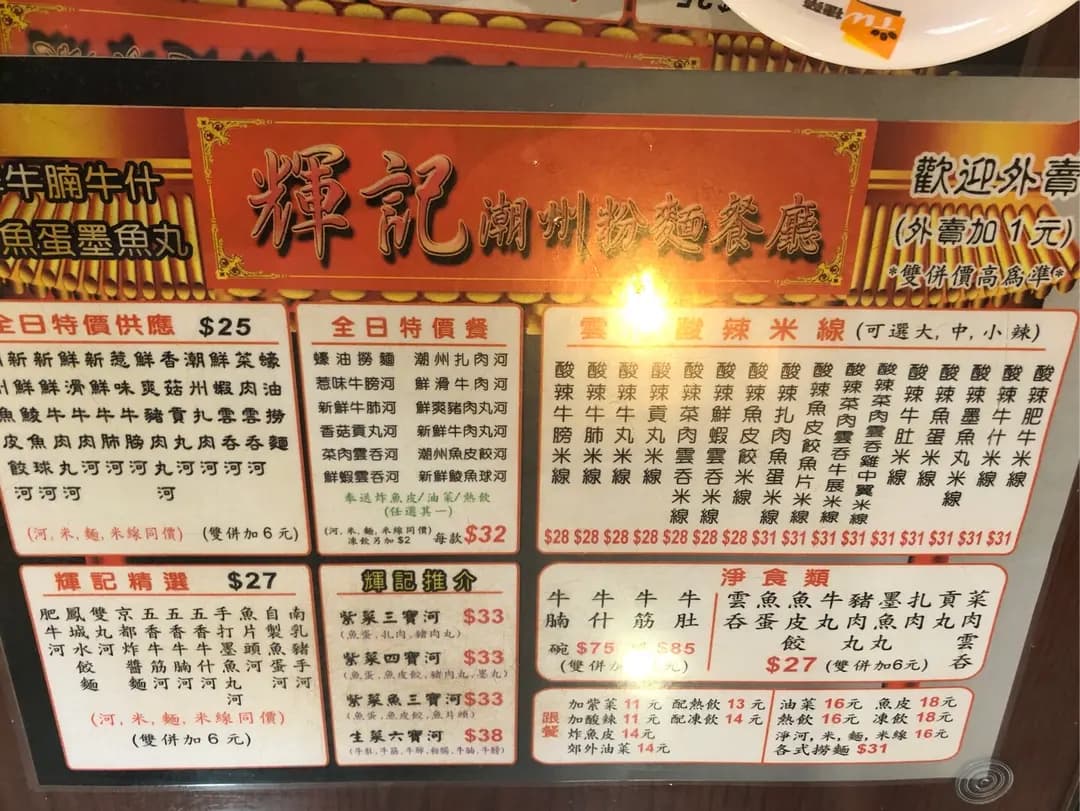 牛腩牛什
魚蛋墨魚丸
輝記潮州粉麵餐廳
歡迎外賣
(外賣加1元)
*雙併價高為準*
全日特價供應 $25
蠔油撈麵
菜肉雲吞河
鮮蝦雲吞河
潮州扎肉河
香菇貢丸河
鮮爽豬肉丸河
惹味牛膀河
新鮮牛肺河
鮮滑牛肉河
新鮮牛肉丸河
新鮮鯪魚球河
州魚皮餃河
(河,米,麵,米線同價) (雙併加6元)
全日特價餐
蠔油撈麵 潮州扎肉河
惹味牛膀河 鮮滑牛肉河
新鮮牛肺河 鮮爽豬肉丸河
香菇貢丸河 新鮮牛肉丸河
菜肉雲吞河 潮州魚皮餃河
鮮蝦雲吞河 新鮮鯪魚球河
奉送炸魚皮/油菜/熱飲
(任選其一)
(河,米,麵,米線同價)
凍飲另加$2 每款$32
雲 酸辣米線 (可選大,中,小辣)
酸辣肥牛米線
酸辣牛什米線
酸辣墨魚丸米線
酸辣魚蛋米線
酸辣牛肚米線
酸辣菜肉雲吞雞中翼米線
酸辣菜肉雲吞牛展米線
酸辣魚皮餃魚片米線
酸辣扎肉魚蛋米線
酸辣魚皮餃米線
酸辣鮮蝦雲吞米線
酸辣菜肉雲吞米線
酸辣貢丸米線
酸辣牛丸米線
酸辣牛肺米線
酸辣牛膀米線
$28 $28 $28 $28 $28 $28 $28 $31 $31 $31 $31 $31 $31 $31 $31 $31
輝記精選 $27
南乳豬手河
自製魚蛋河
魚片頭河
手打墨魚丸河
五香牛什河
五香牛腩河
五香牛筋河
京都炸醬麵
雙丸河
鳳城水餃麵
肥牛河
(河,米,麵,米線同價)
(雙併加6元)
輝記推介
紫菜三寶河 $33
(魚蛋,扎肉,豬肉丸)
紫菜四寶河 $33
(魚蛋,魚皮餃,豬肉丸,墨丸)
紫菜魚三寶河 $33
(魚蛋,魚皮餃,魚片頭)
生菜六寶河 $38
淨食類
牛腩
牛什
牛筋
牛肚
碗 $75 $85
(雙併加 元)
雲吞
魚蛋
魚皮餃
牛丸
豬肉丸
墨魚丸
扎肉
貢丸
菜肉雲吞
$27 (雙併加6元)
跟餐
加紫菜 11元 配熱飲 13元
加酸辣 11元 配凍飲 14元
炸魚皮 14元
郊外油菜 14元
油菜 16元 魚皮 18元
熱飲 16元 凍飲 18元
淨河,米,麵,米線 16元
各式撈麵 $31